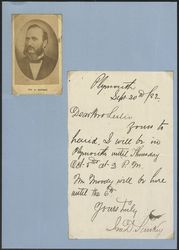 Plymouth
Sept. 30th /82
Dear Bro
Yours to
hand, I will be in
Plymouth until Thursday
Oct 5th at 3 P.M.
Mr Moody will be here
until the 6th
Yours truly,
Ira D. Sankey